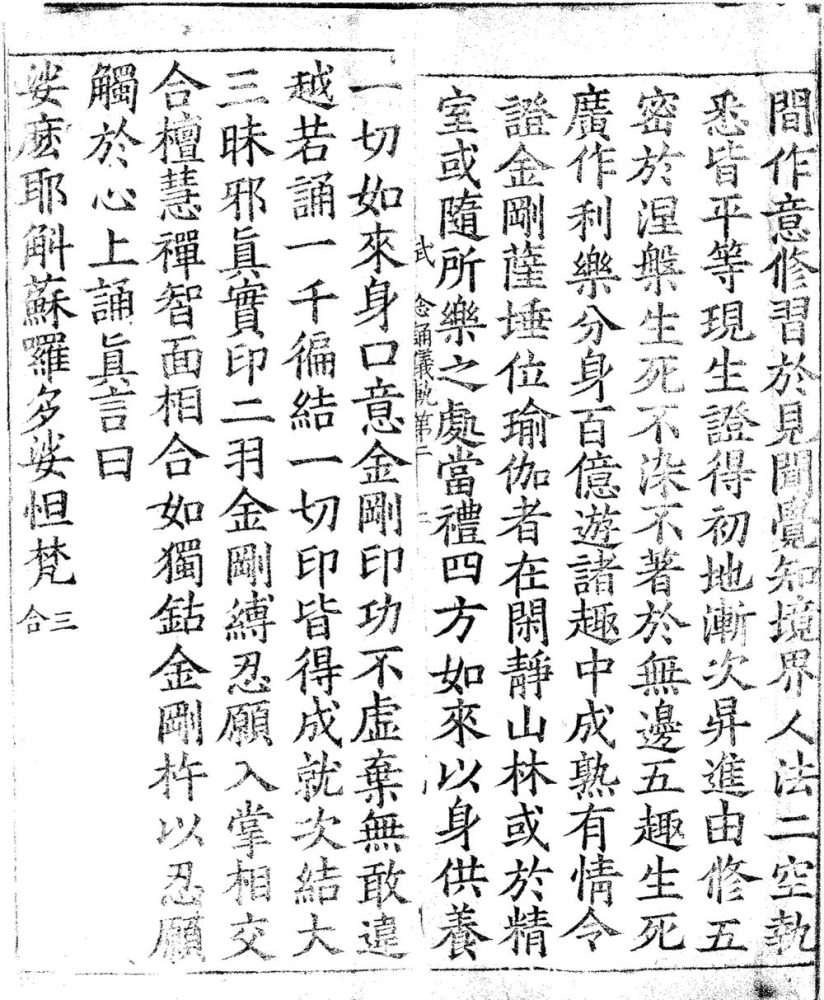 間作意修習於見聞覺知境界人法二空執
悉皆平等現生證得初地漸次昇進由修五
密於涅槃生死不染不著於無邊五趣生死
廣作利樂分身百億遊諸趣中成熟有情令
證金剛薩埵位瑜伽者在閑靜山林或於精
室或隨所樂之處當禮四方如來以身供養
武 念誦儀軌第二 二
一切如來身口意金剛印功不虛棄無敢違
越若誦一千徧結一切印皆得成就次結大
三昧邪眞實印二羽金剛縛忍願入掌相交
合檀慧禪智面相合如獨鈷金剛杵以忍願
觸於心上誦眞言曰
娑麽耶斛蘇囉多娑怛梵 三合